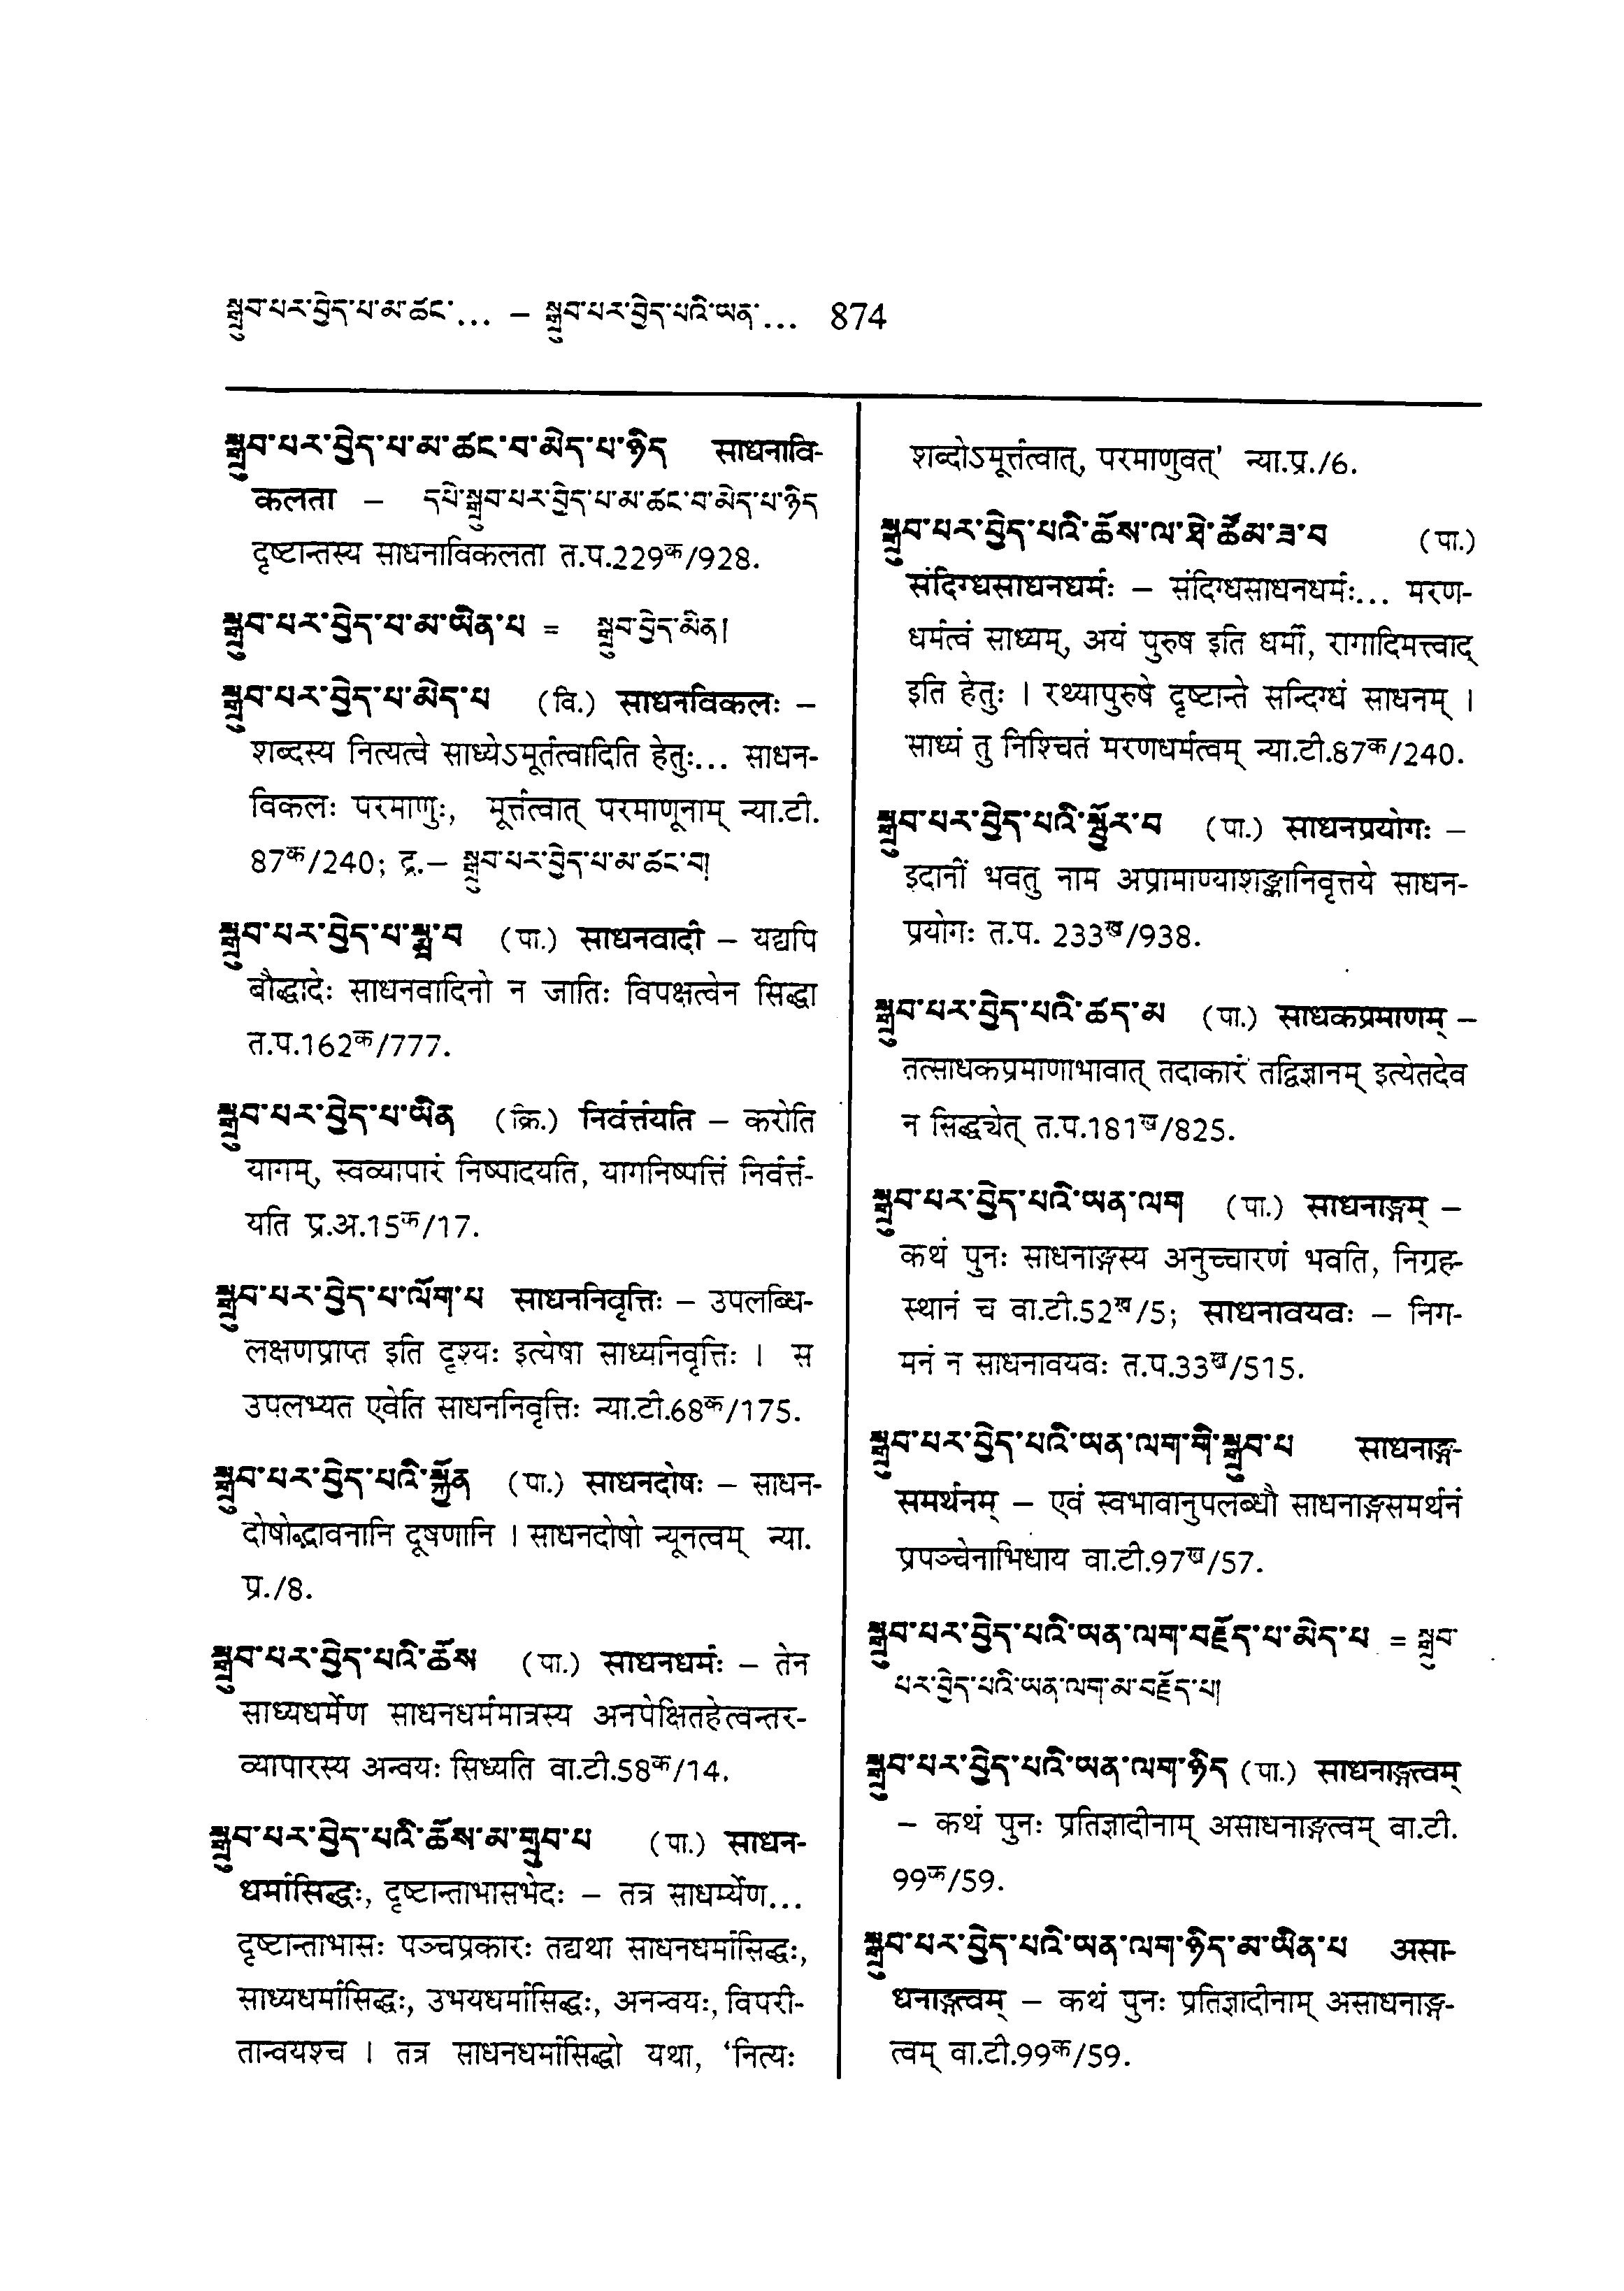 སྒྲུབ་པར་བྱེད་པ་མ་ཚང་... – སྒྲུབ་པར་བྱེད་པའི་ཡན་... 874
སྒྲུབ་པར་བྱེད་པ་མ་ཚང་བ་མེད་པ་ཉིད साधनावि-
कलता – དཔེ་སྒྲུབ་པར་བྱེད་པ་མ་ཚང་བ་མེད་པ་ཉིད
दृष्टान्तस्य साधनाविकलता त.प.229क/928.
སྒྲུབ་པར་བྱེད་པ་མ་ཡིན་པ = སྒྲུབ་བྱེད་མིན།
སྒྲུབ་པར་བྱེད་པ་མེད་པ (वि.) साधनविकलः –
शब्दस्य नित्यत्वे साध्येऽमूर्तत्वादिति हेतुः... साधन-
विकलः परमाणुः, मूर्त्तत्वात् परमाणूनाम् न्या.टी.
87क/240; द्र.– སྒྲུབ་པར་བྱེད་པ་མ་ཚང་བ།
སྒྲུབ་པར་བྱེད་པ་སྨྲ་བ (पा.) साधनवादी – यद्यपि
बौद्धादेः साधनवादिनो न जातिः विपक्षत्वेन सिद्धा
त.प.162क/777.
སྒྲུབ་པར་བྱེད་པ་ཡིན (क्रि.) निर्वर्त्तयति – करोति
यागम्, स्वव्यापारं निष्पादयति, यागनिष्पत्तिं निर्वर्त्त-
यति प्र.अ.15क/17.
སྒྲུབ་པར་བྱེད་པ་ལོག་པ साधननिवृत्तिः – उपलब्धि-
लक्षणप्राप्त इति दृश्यः इत्येषा साध्यनिवृत्तिः । स
उपलभ्यत एवेति साधननिवृत्तिः न्या.टी.68क/175.
སྒྲུབ་པར་བྱེད་པའི་སྐྱོན (पा.) साधनदोषः – साधन-
दोषोद्भावनानि दूषणानि । साधनदोषो न्यूनत्वम् न्या.
प्र./8.
སྒྲུབ་པར་བྱེད་པའི་ཆོས (पा.) साधनधर्मः – तेन
साध्यधर्मेण साधनधर्ममात्रस्य अनपेक्षितहेत्वन्तर-
व्यापारस्य अन्वयः सिध्यति वा.टी.58क/14.
སྒྲུབ་པར་བྱེད་པའི་ཆོས་མ་གྲུབ་པ (पा.) साधन-
धर्मासिद्धः, दृष्टान्ताभासभेदः – तत्र साधर्म्येण...
दृष्टान्ताभासः पञ्चप्रकारः तद्यथा साधनधर्मासिद्धः,
साध्यधर्मासिद्धः, उभयधर्मासिद्धः, अनन्वयः, विपरी-
तान्वयश्च । तत्र साधनधर्मासिद्धो यथा, ‘नित्यः
शब्दोऽमूर्त्तत्वात्, परमाणुवत्’ न्या.प्र./6.
སྒྲུབ་པར་བྱེད་པའི་ཆོས་ལ་ཐེ་ཚོམ་ཟ་བ (पा.)
संदिग्धसाधनधर्मः – संदिग्धसाधनधर्मः... मरण-
धर्मत्वं साध्यम्, अयं पुरुष इति धर्मी, रागादिमत्त्वाद्
इति हेतुः । रथ्यापुरुषे दृष्टान्ते सन्दिग्धं साधनम् ।
साध्यं तु निश्चितं मरणधर्मत्वम् न्या.टी.87क/240.
སྒྲུབ་པར་བྱེད་པའི་སྦྱོར་བ (पा.) साधनप्रयोगः –
इदानीं भवतु नाम अप्रामाण्याशङ्कानिवृत्तये साधन-
प्रयोगः त.प. 233ख/938.
སྒྲུབ་པར་བྱེད་པའི་ཚད་མ (पा.) साधकप्रमाणम् –
तत्साधकप्रमाणाभावात् तदाकारं तद्विज्ञानम् इत्येतदेव
न सिद्ध्येत् त.प.181ख/825.
སྒྲུབ་པར་བྱེད་པའི་ཡན་ལག (पा.) साधनाङ्गम् –
कथं पुनः साधनाङ्गस्य अनुच्चारणं भवति, निग्रह-
स्थानं च वा.टी.52ख/5; साधनावयवः – निग-
मनं न साधनावयवः त.प.33ख/515.
སྒྲུབ་པར་བྱེད་པའི་ཡན་ལག་གི་སྒྲུབ་པ साधनाङ्ग-
समर्थनम् – एवं स्वभावानुपलब्धौ साधनाङ्गसमर्थनं
प्रपञ्चेनाभिधाय वा.टी.97ख/57.
སྒྲུབ་པར་བྱེད་པའི་ཡན་ལག་བརྗོད་པ་མེད་པ = སྒྲུབ་
པར་བྱེད་པའི་ཡན་ལག་མ་བརྗོད་པ།
སྒྲུབ་པར་བྱེད་པའི་ཡན་ལག་ཉིད (पा.) साधनाङ्गत्वम्
– कथं पुनः प्रतिज्ञादीनाम् असाधनाङ्गत्वम् वा.टी.
99क/59.
སྒྲུབ་པར་བྱེད་པའི་ཡན་ལག་ཉིད་མ་ཡིན་པ असा-
धनाङ्गत्वम् – कथं पुनः प्रतिज्ञादीनाम् असाधनाङ्ग-
त्वम् वा.टी.99क/59.